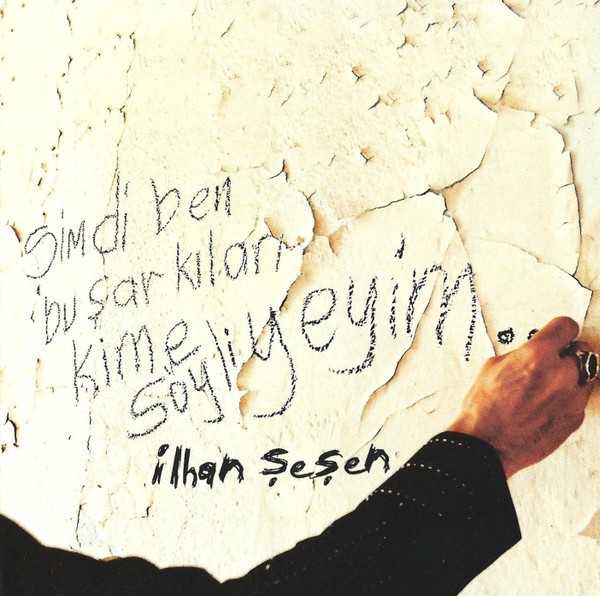 şimdi ben
bu şarkıları
kime
söyliyeyim...
ilhan şeşen